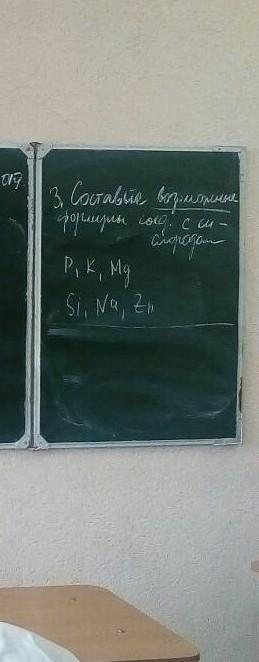 3. Составьте возможные
формулы соед. с ки-
слородом
P, K, Mg
Si, Na, Zn